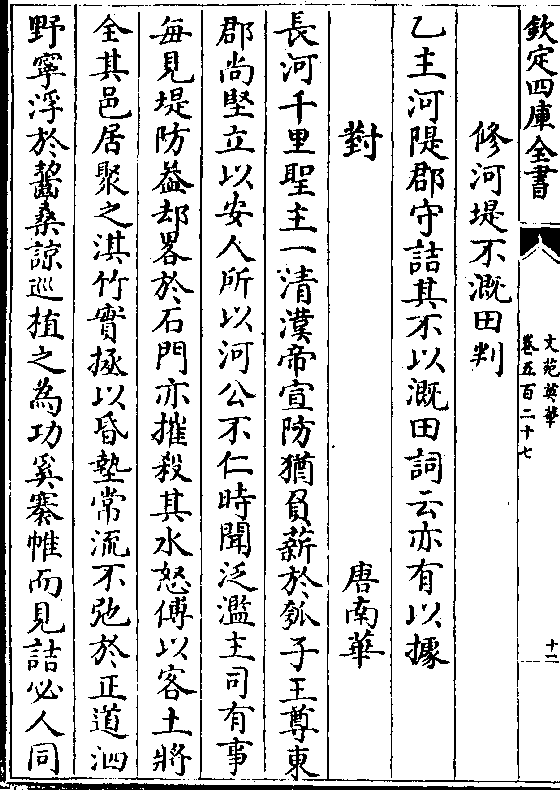 欽定四庫全書
文苑英華
卷五百二十七
十一
修河堤不溉田判
乙主河隄郡守詰其不以溉田詞云亦有以據
對
唐南華
長河千里聖主一清漢帝宣防猶負薪於瓠子王尊東
郡尚堅立以安人所以河公不仁時聞泛濫主司有事
每見堤防益却畧於石門亦摧殺其水怒傅以客土將
全其邑居聚之淇竹實拯以昏墊常流不弛於正道泗
野寧浮於齧桑諒巡植之為功奚褰帷而見詰必人同